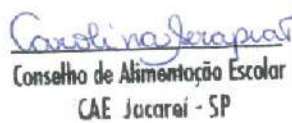 Carolina
Conselho de Alimentação Escolar
CAE Jacareí - SP